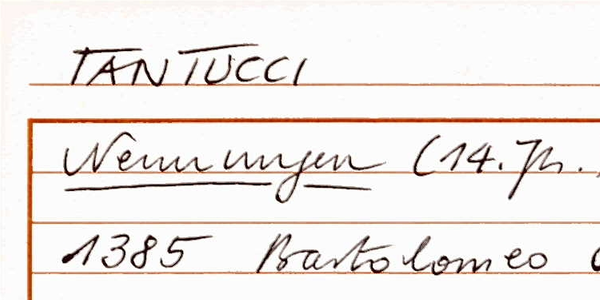 TANTUCCI
Nennungen (14. Jh.
1385 Bartolomeo